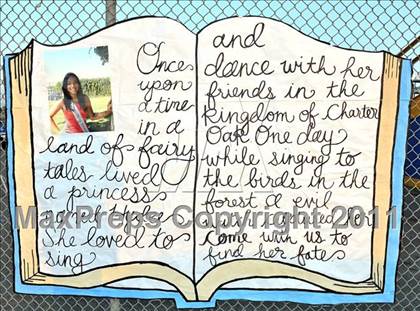 Once
upon
a time
in a
land of fairy
tales lived
a princess
She loved to
sing
and
dance with her
friends in the
Kingdom of Charter
Oak One day
while singing to
the birds in the
forest a evil
come with us to
find her fate
MaxPreps Copyright 2011